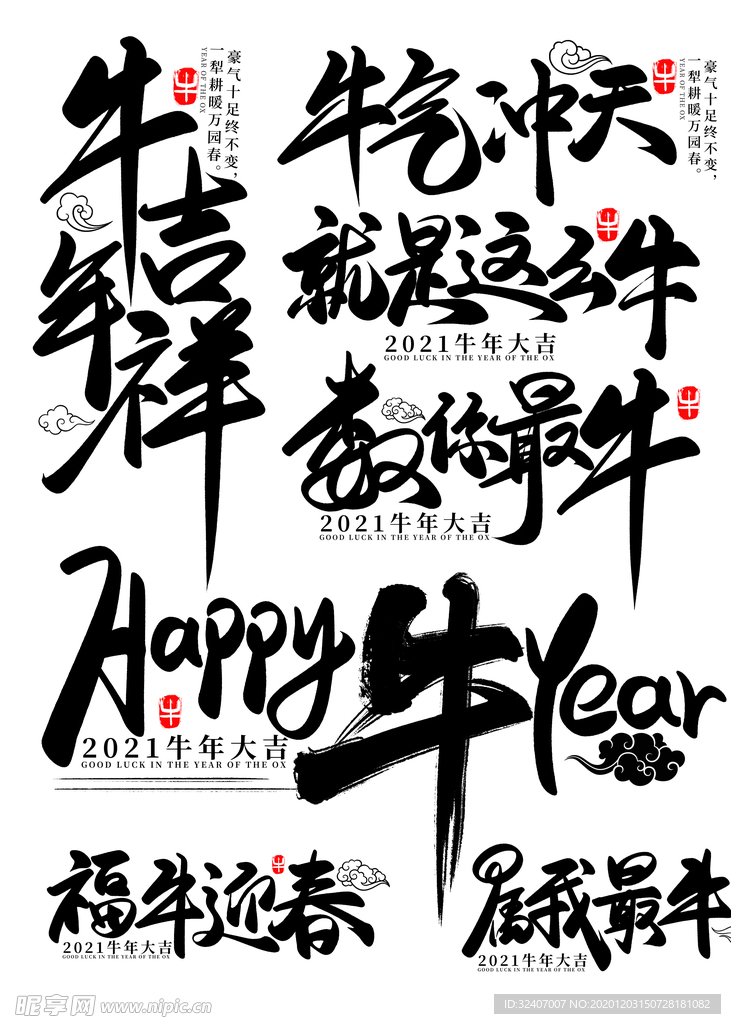 牛年吉祥
牛
豪气十足终不变，
一犁耕暖万园春。
YEAR OF THE OX
牛气冲天
牛
豪气十足终不变，
一犁耕暖万园春。
YEAR OF THE OX
就是这么牛
牛
2021牛年大吉
GOOD LUCK IN THE YEAR OF THE OX
数你最牛
牛
2021牛年大吉
GOOD LUCK IN THE YEAR OF THE OX
Happy牛Year
牛
2021牛年大吉
GOOD LUCK IN THE YEAR OF THE OX
福牛迎春
牛
2021牛年大吉
GOOD LUCK IN THE YEAR OF THE OX
属我最牛
2021牛年大吉
GOOD LUCK IN THE YEAR OF THE OX
昵享网 www.nipic.cn
ID:32407007 NO:20201203150728181082